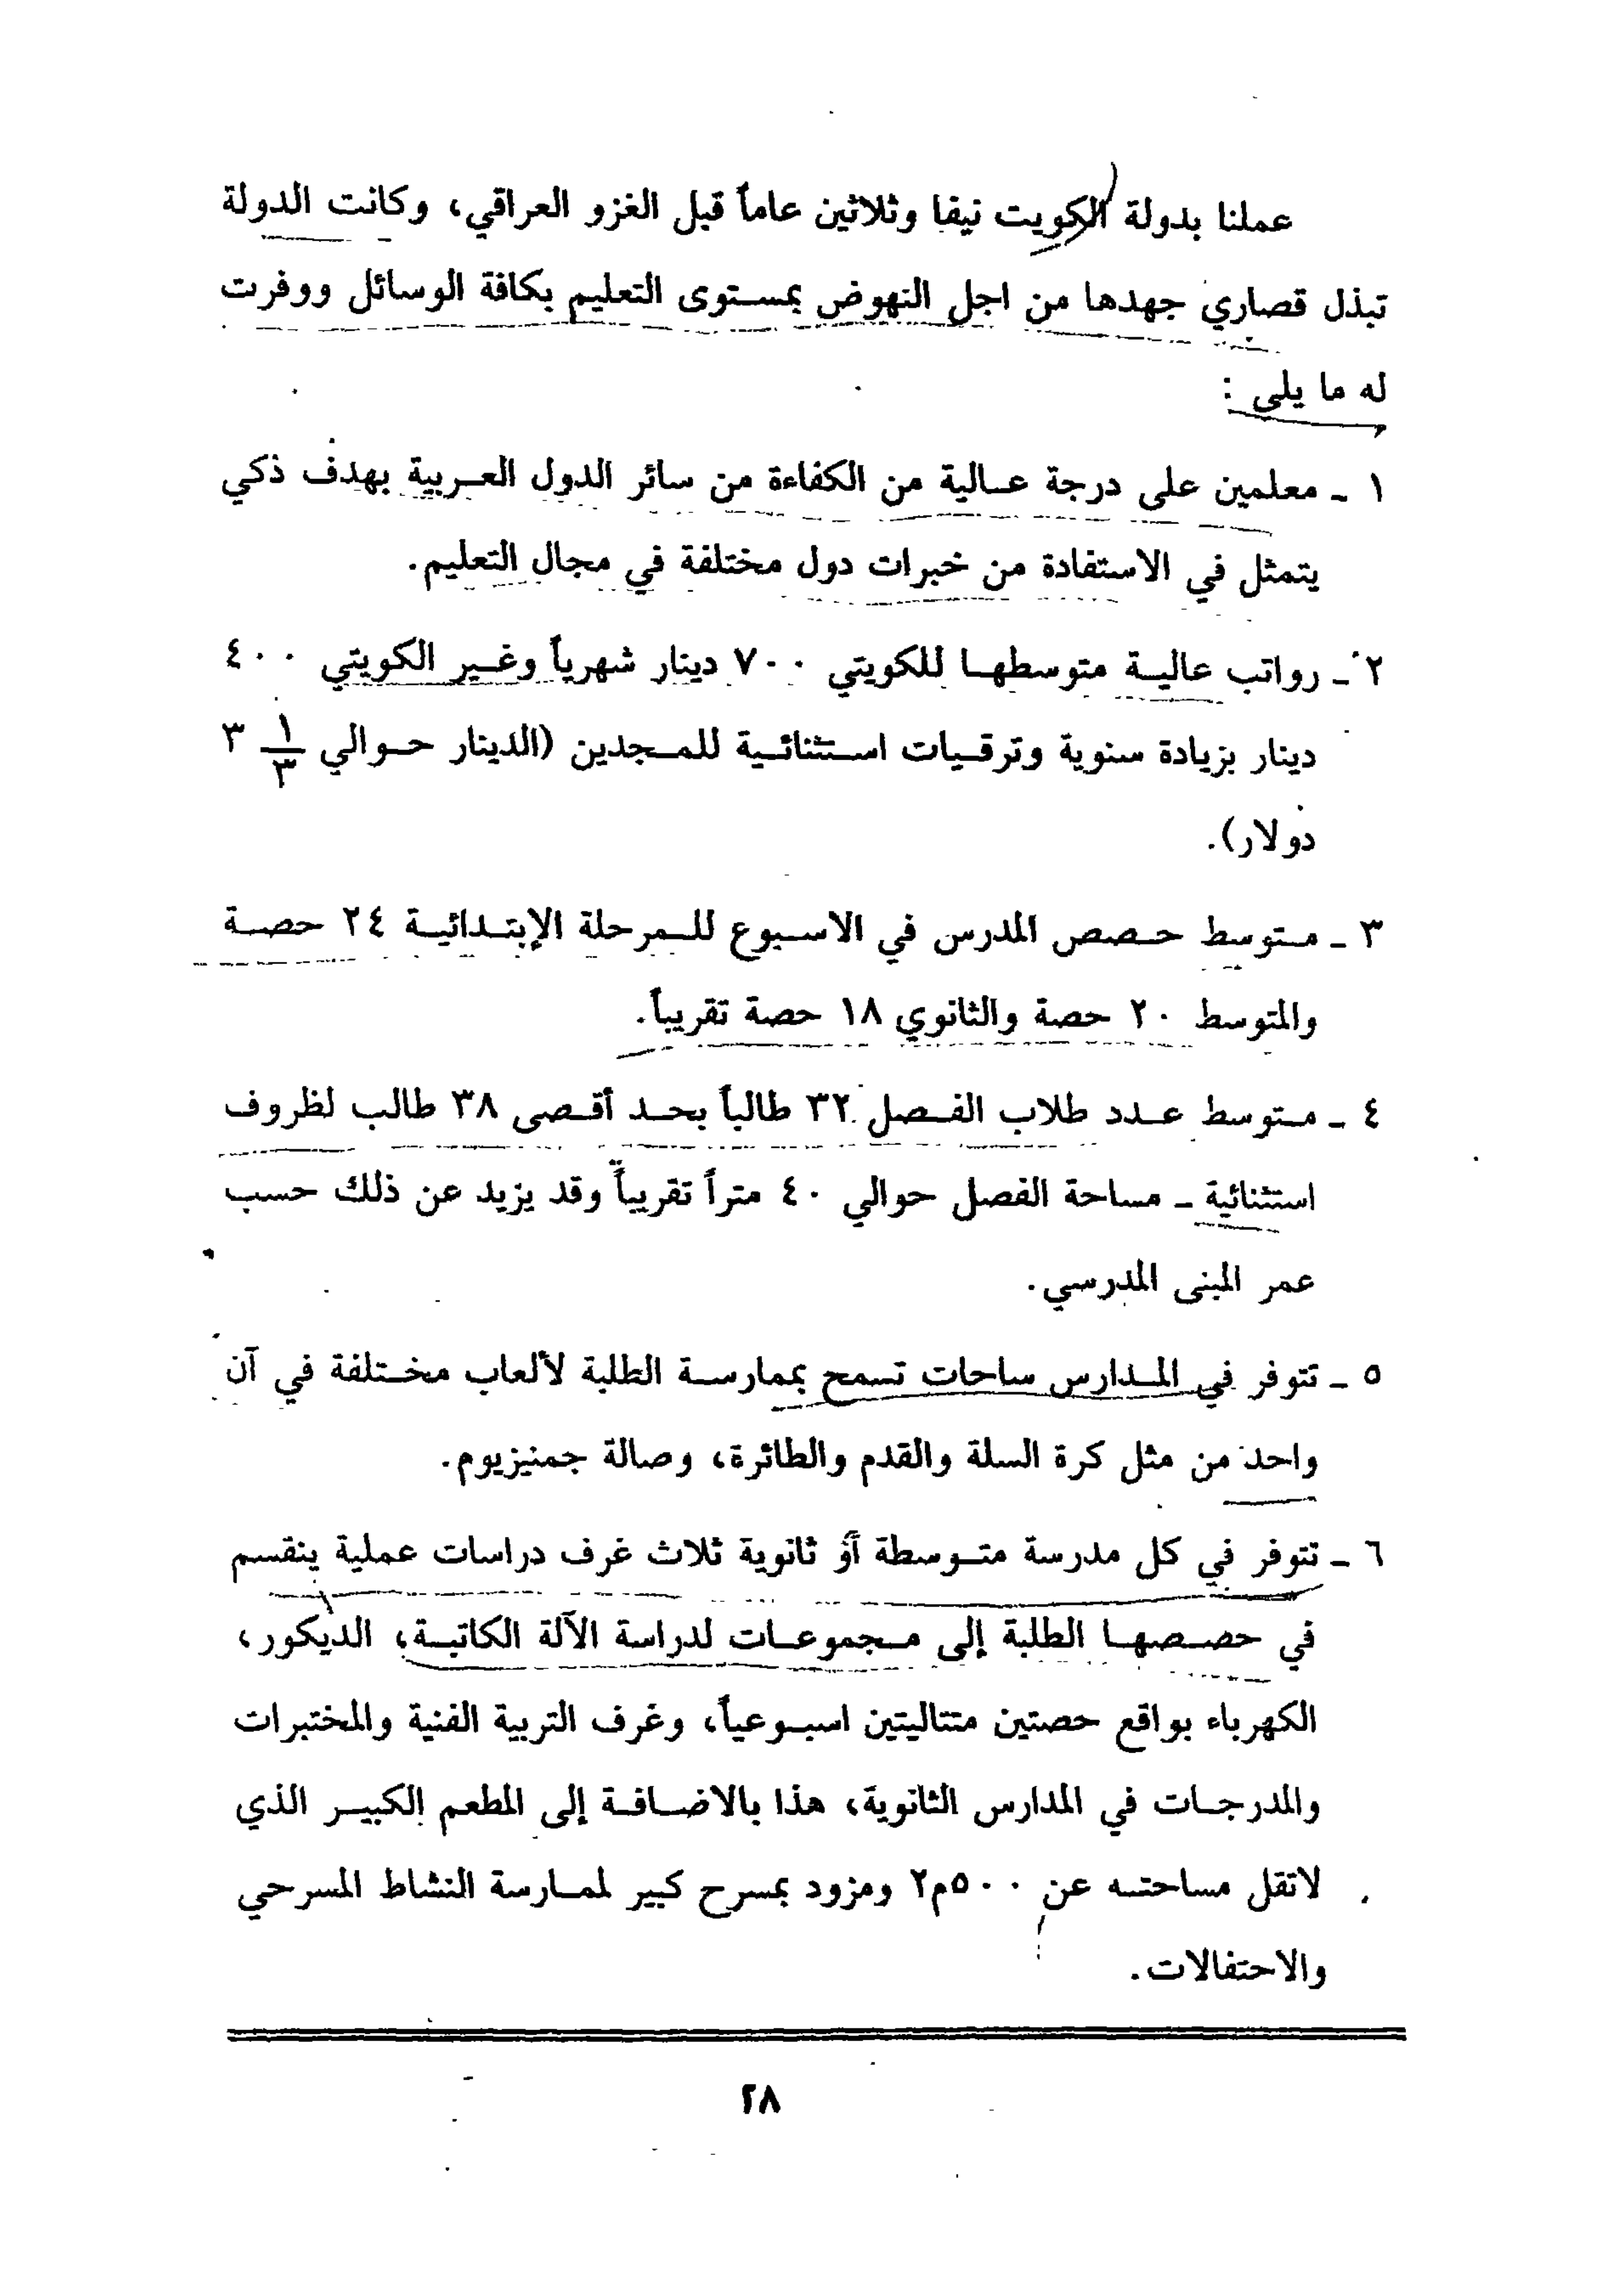 عملنا بدولة الكويت نيفا وثلاثين عاماً قبل الغزو العراقي، وكانت الدولة
تبذل قصاري جهدها من اجل النهوض بمستوى التعليم بكافة الوسائل ووفرت
له ما يلي :
١ - معلمين على درجة عالية من الكفاءة من سائر الدول العربية بهدف ذكي
يتمثل في الاستفادة من خبرات دول مختلفة في مجال التعليم.
٢ - رواتب عالية متوسطها للكويتي ٧٠٠ دينار شهرياً وغير الكويتي ٤٠٠
دينار بزيادة سنوية وترقيات استثنائية للمجدين (الدينار حوالي ١/٣ ٣
دولار).
٣ - متوسط حصص المدرس في الاسبوع للمرحلة الإبتدائية ٢٤ حصة
والمتوسط ٢٠ حصة والثانوي ١٨ حصة تقريباً.
٤ - متوسط عدد طلاب الفصل ٣٢ طالباً بحد أقصى ٣٨ طالب لظروف
استثنائية - مساحة الفصل حوالي ٤٠ متراً تقريباً وقد يزيد عن ذلك حسب
عمر المبنى المدرسي.
٥ - تتوفر في المدارس ساحات تسمح بممارسة الطلبة لألعاب مختلفة في آن
واحد من مثل كرة السلة والقدم والطائرة، وصالة جمنيزيوم.
٦ - تتوفر في كل مدرسة متوسطة أو ثانوية ثلاث غرف دراسات عملية ينقسم
في حصصها الطلبة إلى مجموعات لدراسة الآلة الكاتبة، الديكور،
الكهرباء بواقع حصتين متتاليتين اسبوعياً، وغرف التربية الفنية والمختبرات
والمدرجات في المدارس الثانوية، هذا بالاضافة إلى المطعم الكبير الذي
لاتقل مساحته عن ٥٠٠م٢ ومزود بمسرح كبير لممارسة النشاط المسرحي
والاحتفالات.
٢٨